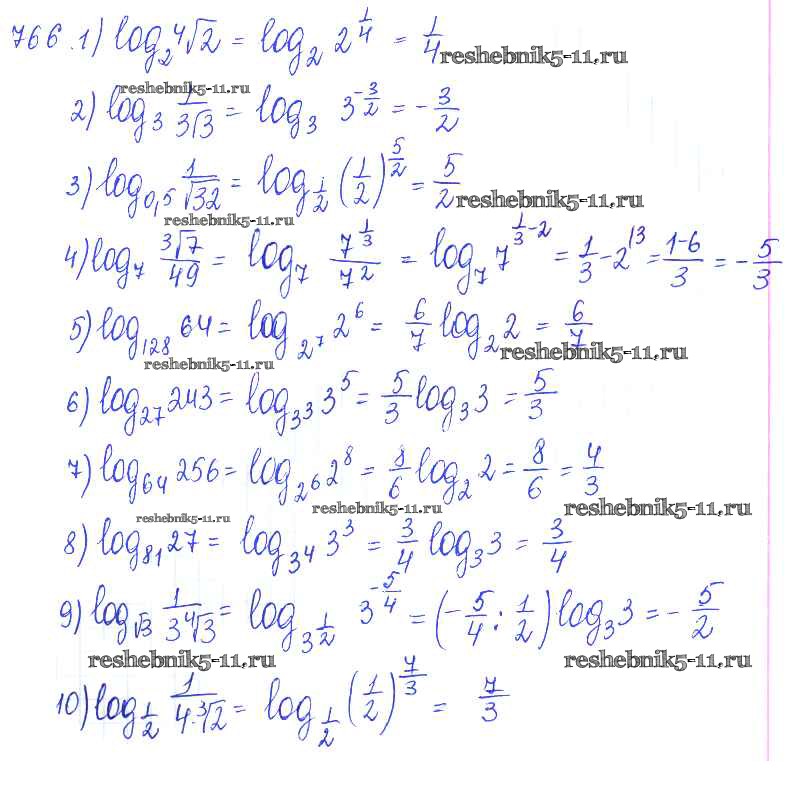 766. 1) log₂ ⁴√2 = log₂ 2^(1/4) = 1/4 reshebnik5-11.ru
reshebnik5-11.ru
2) log₃ 1/(3√3) = log₃ 3^(-3/2) = -3/2
3) log₀,₅ 1/√32 = log_(1/2) (1/2)^(5/2) = 5/2 reshebnik5-11.ru
reshebnik5-11.ru
4) log₇ ³√7/49 = log₇ 7^(1/3)/7² = log₇ 7^(1/3-2) = 1/3 - 2^(13) = (1-6)/3 = -5/3
5) log₁₂₈ 64 = log_(2⁷) 2⁶ = 6/7 log₂ 2 = 6/7
reshebnik5-11.ru reshebnik5-11.ru
6) log₂₇ 243 = log_(3³) 3⁵ = 5/3 log₃ 3 = 5/3
7) log₆₄ 256 = log_(2⁶) 2⁸ = 8/6 log₂ 2 = 8/6 = 4/3
reshebnik5-11.ru reshebnik5-11.ru reshebnik5-11.ru
8) log₈₁ 27 = log_(3⁴) 3³ = 3/4 log₃ 3 = 3/4
9) log_(√3) 1/(3⁴√3) = log_(3^(1/2)) 3^(-5/4) = (-5/4 : 1/2) log₃ 3 = -5/2
reshebnik5-11.ru reshebnik5-11.ru
10) log_(1/2) 1/(4·³√2) = log_(1/2) (1/2)^(7/3) = 7/3